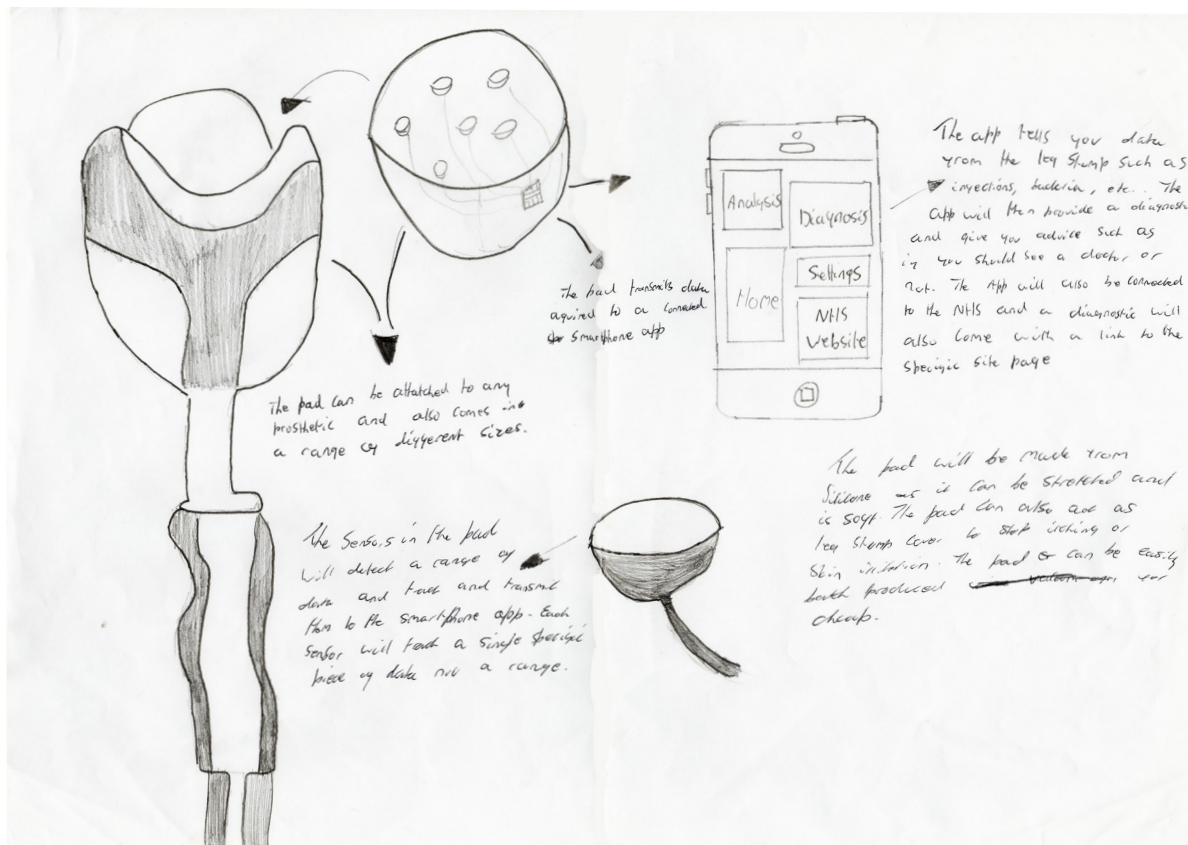 The pad can be attatched to any
prosthetic and also comes in
a range of different sizes.
The pad transmits data
aquired to a connected
smartphone app
Analysis
Diagnosis
Home
Settings
NHS
Website
The app tells you data
from the leg stump such as
infections, bacteria, etc.. The
app will then provide a diagnosti
and give you advice such as
if you should see a doctor or
not. The App will also be connected
to the NHS and a diagnostic will
also come with a link to the
specific site page
The Sensors in the pad
will detect a range of
data and track and transmit
them to the smartphone app. Each
sensor will track a single specific
piece of data not a range.
The pad will be made from
Silicone as it can be stretched and
is soft. The pad can also act as
leg stump cover to stop itching or
skin irritation. The pad can be easily
batch produced for
cheap.